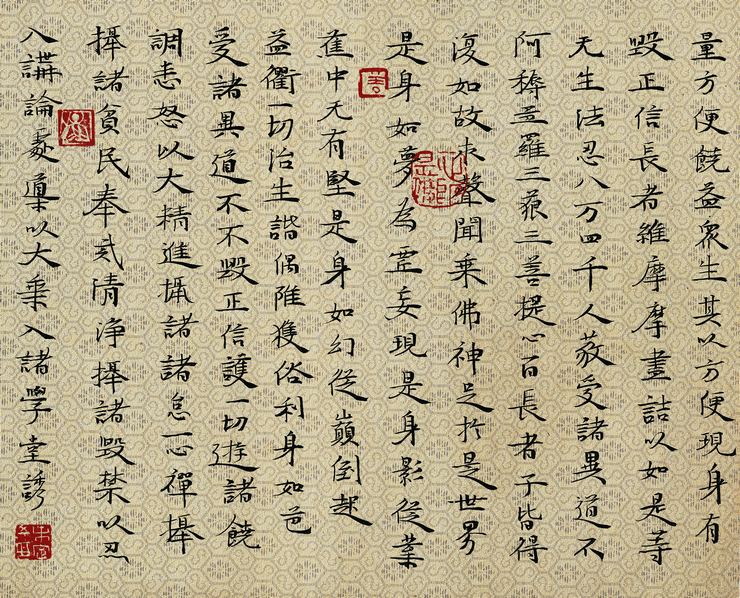 量方便饒益眾生其以方便現身有
毀正信長者維摩摩畫詰以如是等
无生法忍八万四千人敬受諸異道不
阿耨三羅三藐三菩提心百長者子皆得
復如故未聲聞乘佛神足於是世界
是身如夢為虛妄現是身影從業
蕉中无有堅是身如幻從巔倒起
益衢一切治生諧偶雖獲俗利身如芭
受諸異道不不毀正信護一切遊諸饒
調恚怒以大精進攝諸諸怠一心禪攝
攝諸貧民奉戒清淨攝諸毀禁以忍
入講論處導以大乘入諸學堂誘